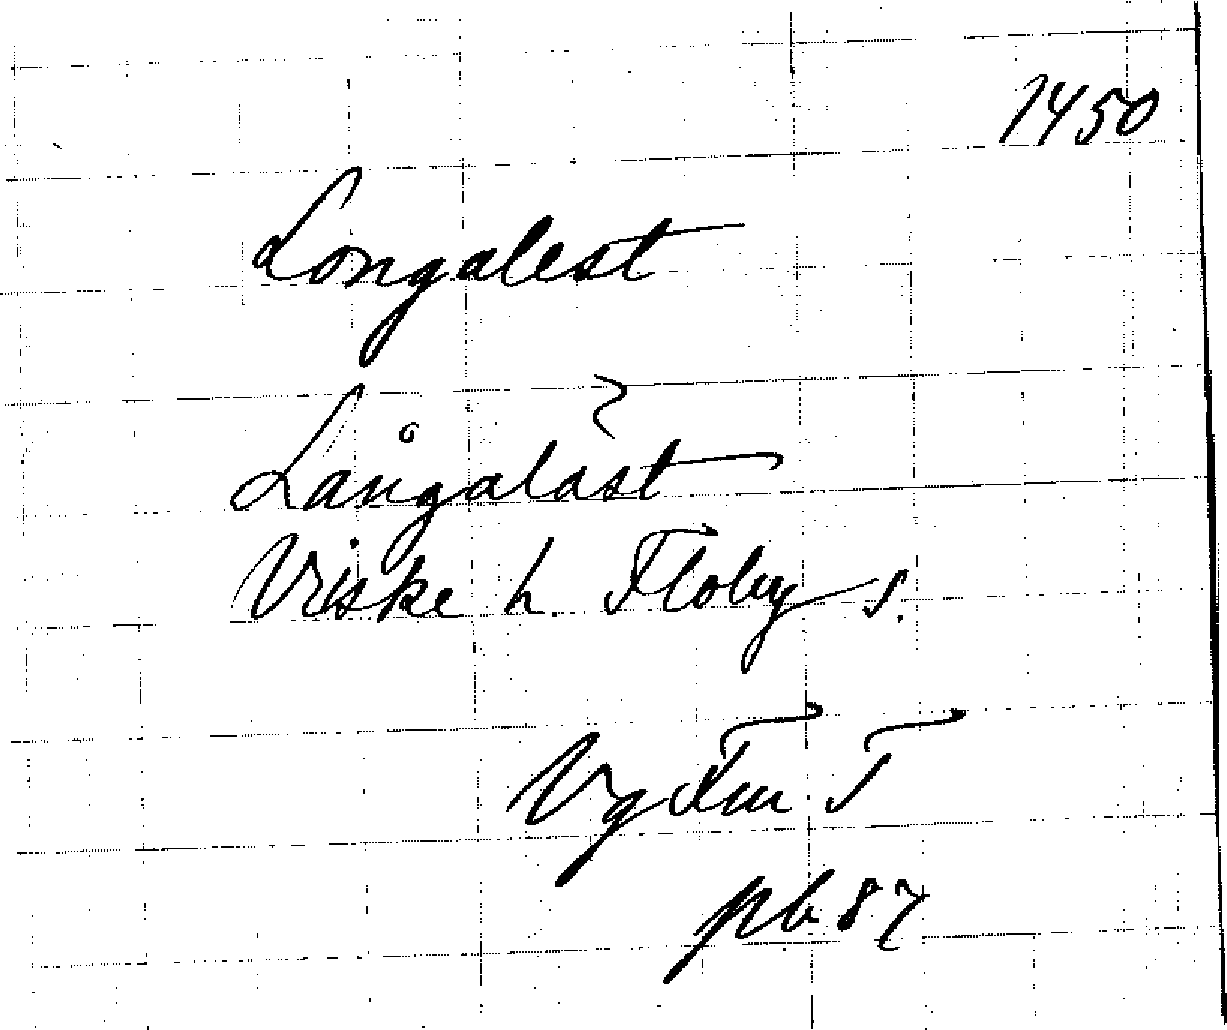 1450
Longalest
Långalast
Vriske h. Floby s.
Vg Fm T
pb 87